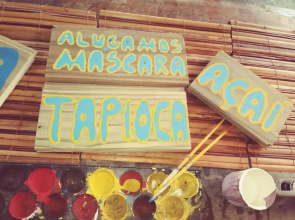 ALUGAMOS
MASCARA
TAPIOCA
AÇAÍ